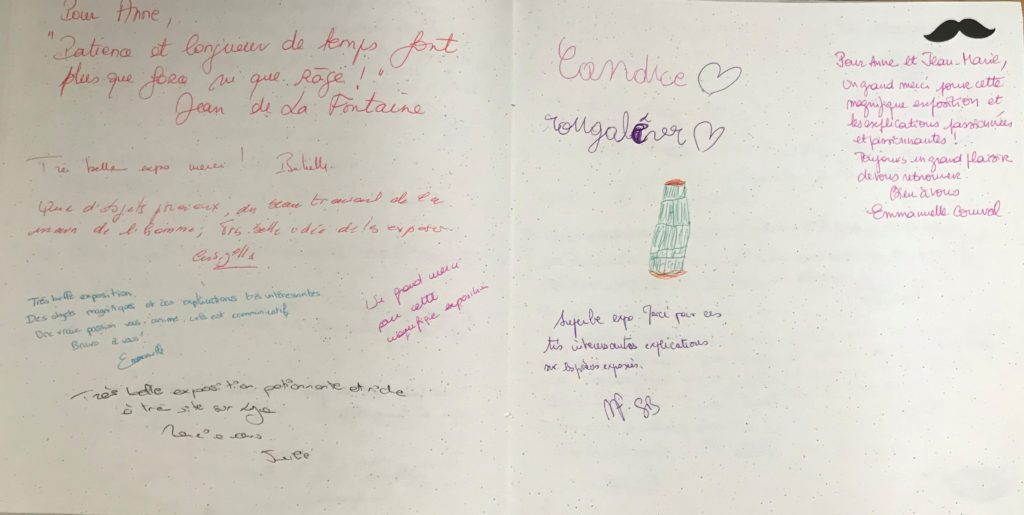 Pour Anne,
"Patience et longueur de temps font
plus que force ni que râge !"
Jean de La Fontaine
Très belle expo merci !
Que d'objets précieux, du beau travail de la
main de l'homme; très belle idée de les exposer
Très belle exposition.
Des objets magnifiques et des explications très intéressantes
Une vraie passion vous anime, cela est communicatif
Bravo à vous
Un grand merci
pour cette
magnifique exposition
Très belle exposition, et riche
à très vite sur
Merci à vous
Candice
Superbe expo. Merci pour ces
très intéressantes explications
exposés.
Pour Anne et Jean-Marie,
un grand merci pour cette
magnifique exposition et
les explications passionnées
et passionnantes !
Toujours un grand plaisir
de vous retrouver
Bien à vous
Emmanuelle